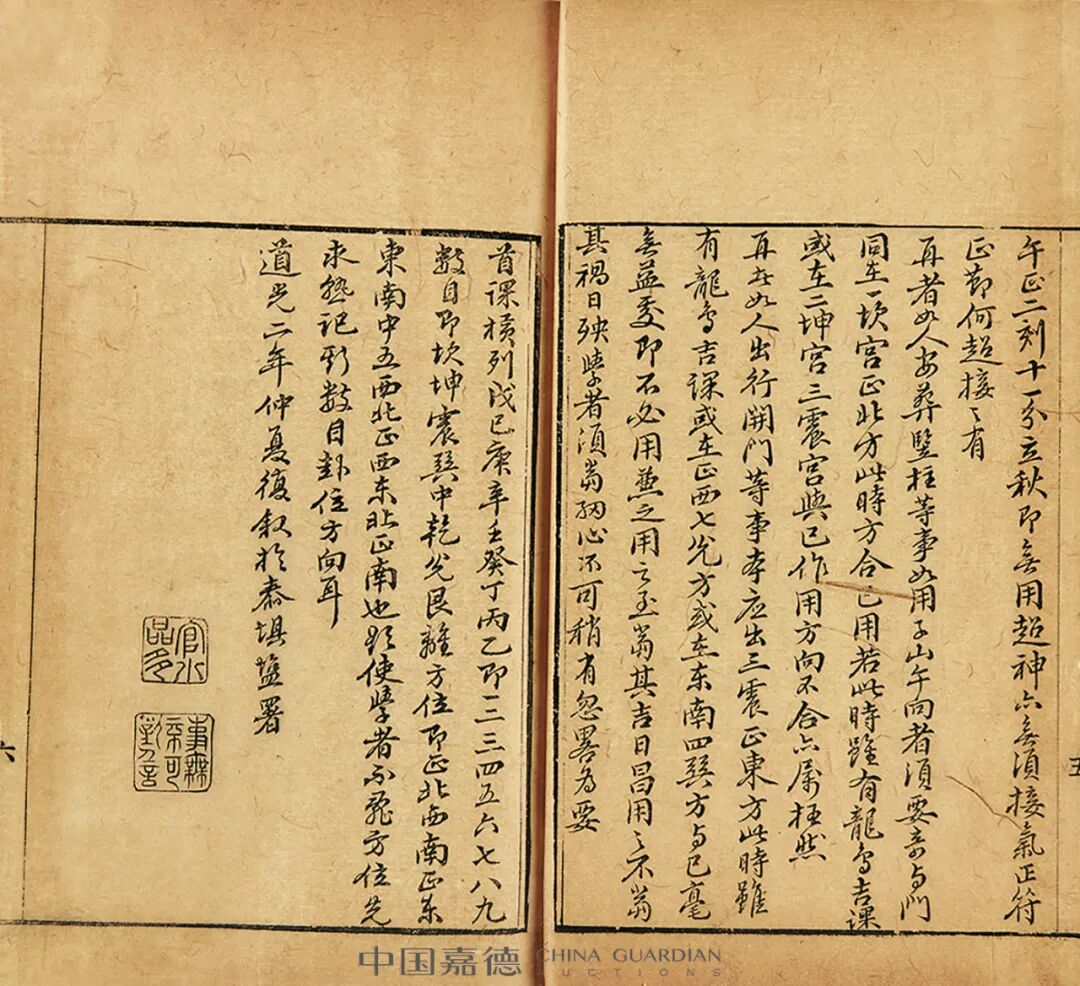 午正二刻十一分立秋即無用超神亦無須接氣正符
正節何超接之有
再者如人安葬豎柱等事如用子山午向者須要奇与門
同在一坎宮正北方此時方合已用若此時雖有龍鳥吉課
或在二坤宮三震宮與已作用方向不合亦属枉然
再者如人出行開門等事奔應出三震正東方此時雖
有龍鳥吉課或在正西七兌方或在东南四巽方与已毫
無益處即不必用無之用之至当其吉日昌用之不当
其禍日殃學者須当細心不可稍有忽畧為要
首課橫列戊己庚辛壬癸丁丙乙即一二三四五六七八九
數目即坎坤震巽中乾兌艮離方位即正北西南正东
東南中五西北正西东北正南也欲使學者不飛方位先
求熟記數目卦位方向耳
道光二年仲夏復叙於泰壩監署
官小
品多
五
六
中国嘉德 CHINA GUARDIAN
AUCTIONS